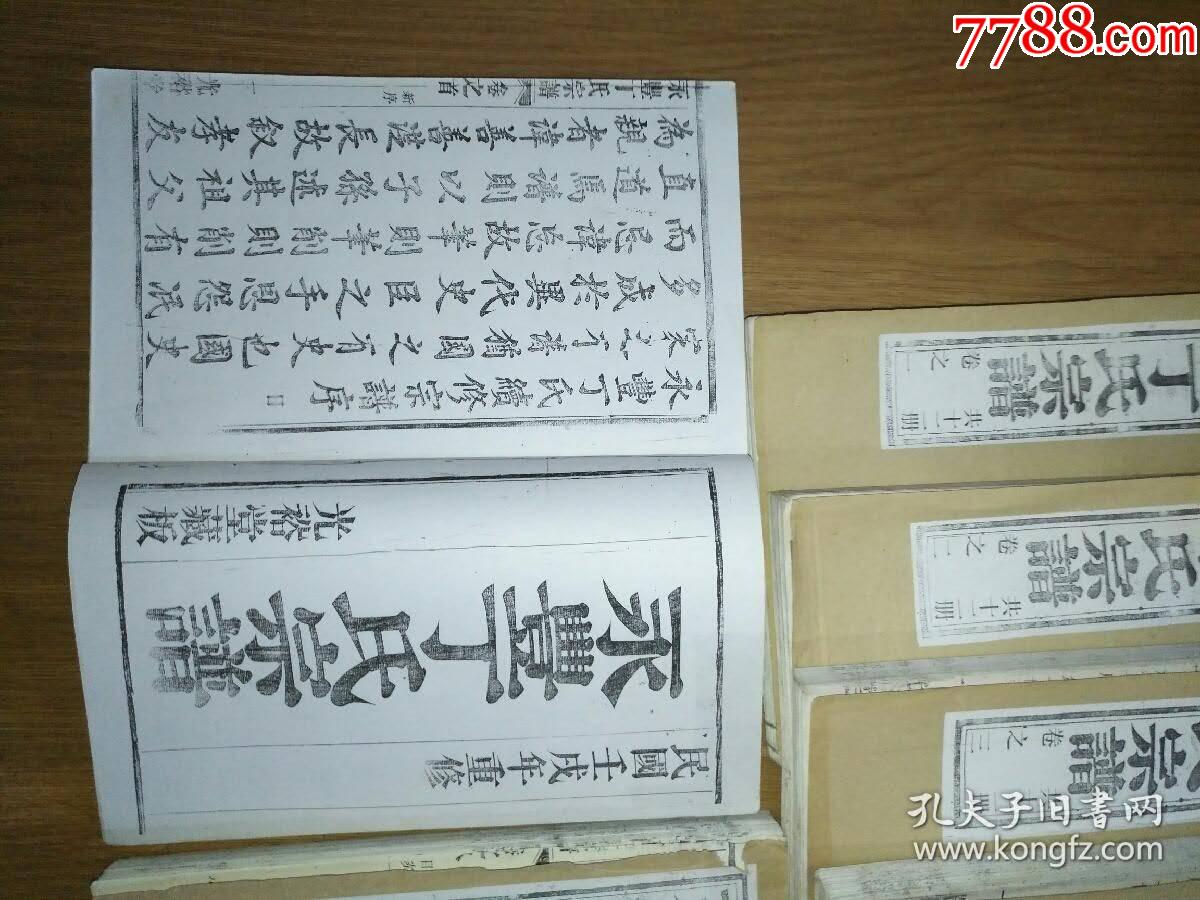 7788.com
民國壬戌年重修
永豐丁氏宗譜
光裕堂藏板
永豐丁氏續修宗譜序
家之有譜猶國之有史也國史
多成於異代史臣之手恩怨泯
而忌諱忘故筆則筆削則削有
直道焉譜則以子孫述其祖父
為親者諱善善從長故敘孝友
永豐丁氏宗譜 卷之首 新序 一 光裕堂
丁氏宗譜
卷之一
共十二冊
氏宗譜
卷之二
共十二冊
氏宗譜
卷之三
孔夫子旧书网
www.kongfz.com